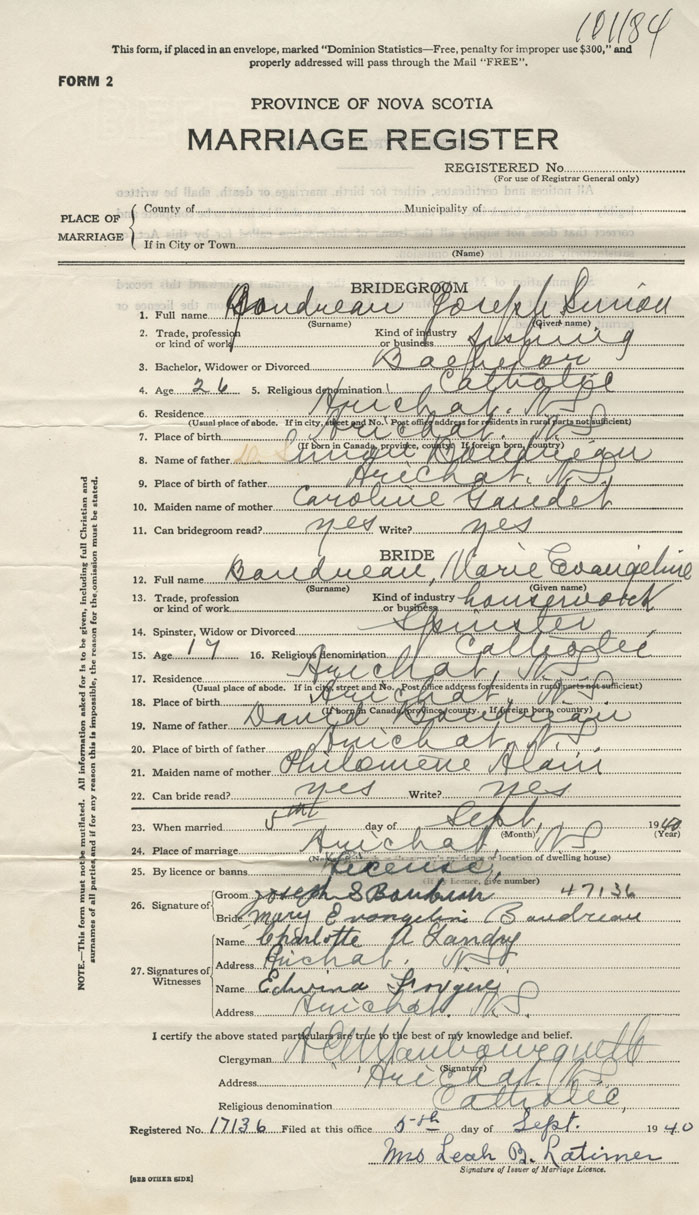 101184
This form, if placed in an envelope, marked "Dominion Statistics—Free, penalty for improper use $300," and
properly addressed will pass through the Mail "FREE".
FORM 2
PROVINCE OF NOVA SCOTIA
MARRIAGE REGISTER
REGISTERED No.
(For use of Registrar General only)
PLACE OF MARRIAGE
County of Municipality of
If in City or Town
(Name)
BRIDEGROOM
1. Full name Boudreau Joseph Simion
(Surname) (Given name)
2. Trade, profession or kind of work Kind of industry or business fishing
3. Bachelor, Widower or Divorced Bachelor
4. Age 26 5. Religious denomination Catholic
6. Residence Arichat. N.S.
(Usual place of abode. If in city, street and No. Post office address for residents in rural parts not sufficient)
7. Place of birth Arichat. N.S.
(If born in Canada, province, county. If foreign born, country)
8. Name of father Boudreau
9. Place of birth of father Arichat. N.S.
10. Maiden name of mother Caroline Gaudet
11. Can bridegroom read? yes Write? yes
BRIDE
12. Full name Boudreau, Marie Evangeline
(Surname) (Given name)
13. Trade, profession or kind of work Kind of industry or business housework
14. Spinster, Widow or Divorced Spinster
15. Age 17 16. Religious denomination Catholic
17. Residence Arichat, N.S.
(Usual place of abode. If in city, street and No. Post office address for residents in rural parts not sufficient)
18. Place of birth Arichat, N.S.
(If born in Canada, province, county. If foreign born, country)
19. Name of father David Boudreau
20. Place of birth of father Arichat, N.S.
21. Maiden name of mother Philomene Alain
22. Can bride read? yes Write? yes
23. When married 5th day of Sept. 1940
(Month) (Year)
24. Place of marriage Arichat, N.S.
location of dwelling house)
25. By licence or banns License,
give number)
26. Signature of Groom Joseph S 47136
Bride Mary Evangelin Boudreau
27. Signatures of Witnesses
Name Charlotte A Landry
Address Arichat. N.S.
Name Edwina
Address Arichat. N.S.
I certify the above stated particulars are true to the best of my knowledge and belief.
Clergyman
(Signature)
Address Arichat. N.S.
Religious denomination Catholic,
Registered No. 17136 Filed at this office 5th day of Sept. 1940
Mrs Leah B. Latimer
Signature of Issuer of Marriage Licence.
[SEE OTHER SIDE]
NOTE.—This form must not be mutilated. All information asked for is to be given, including full Christian and
surnames of all parties and if for any reason this is impossible, the reason for the omission must be stated.